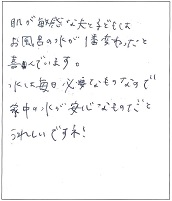 肌が敏感な夫と子どもは
お風呂の水が1番変わったと
喜んでいます。
水は毎日必要なものなので
家中の水が安心なものだと
うれしいですネ!